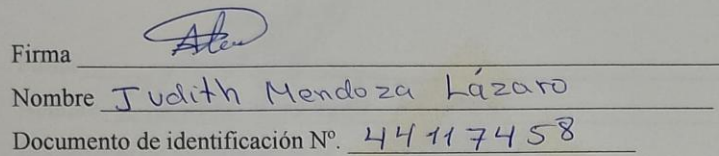 Firma
Nombre Judith Mendoza Lázaro
Documento de identificación Nº. 44117458